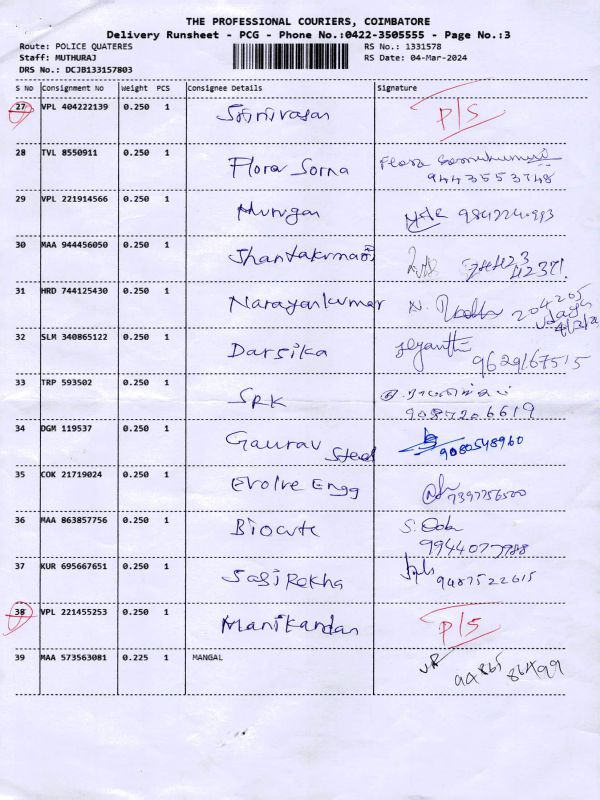 THE PROFESSIONAL COURIERS, COIMBATORE
Delivery Runsheet - PCG - Phone No.:0422-3505555 - Page No.:3
Route: POLICE QUATERES RS No.: 1331578
Staff: MUTHURAJ RS Date: 04-Mar-2024
DRS No.: DCJB133157803
S No Consignment No Weight PCS Consignee Details Signature
27 VPL 404222139 0.250 1 Srinivasan P/S
28 TVL 8550911 0.250 1 Flora Sorna Flora
9443553748
29 VPL 221914566 0.250 1 Murugan
30 MAA 944456050 0.250 1 Shantakumari
42371
31 HRD 744125430 0.250 1 Narayankumar N. 204205
32 SLM 340865122 0.250 1 Darsika Jeyanthi
9629167515
33 TRP 593502 0.250 1 SRK
9087206619
34 DGM 119537 0.250 1 Gaurav Steel 9080548960
35 COK 21719024 0.250 1 Evolve Engg
7397756500
36 MAA 863857756 0.250 1 Biocute S.
37 KUR 695667651 0.250 1 Sasi Rekha 9487522615
38 VPL 221455253 0.250 1 Manikandan P/S
39 MAA 573563081 0.225 1 MANGAL